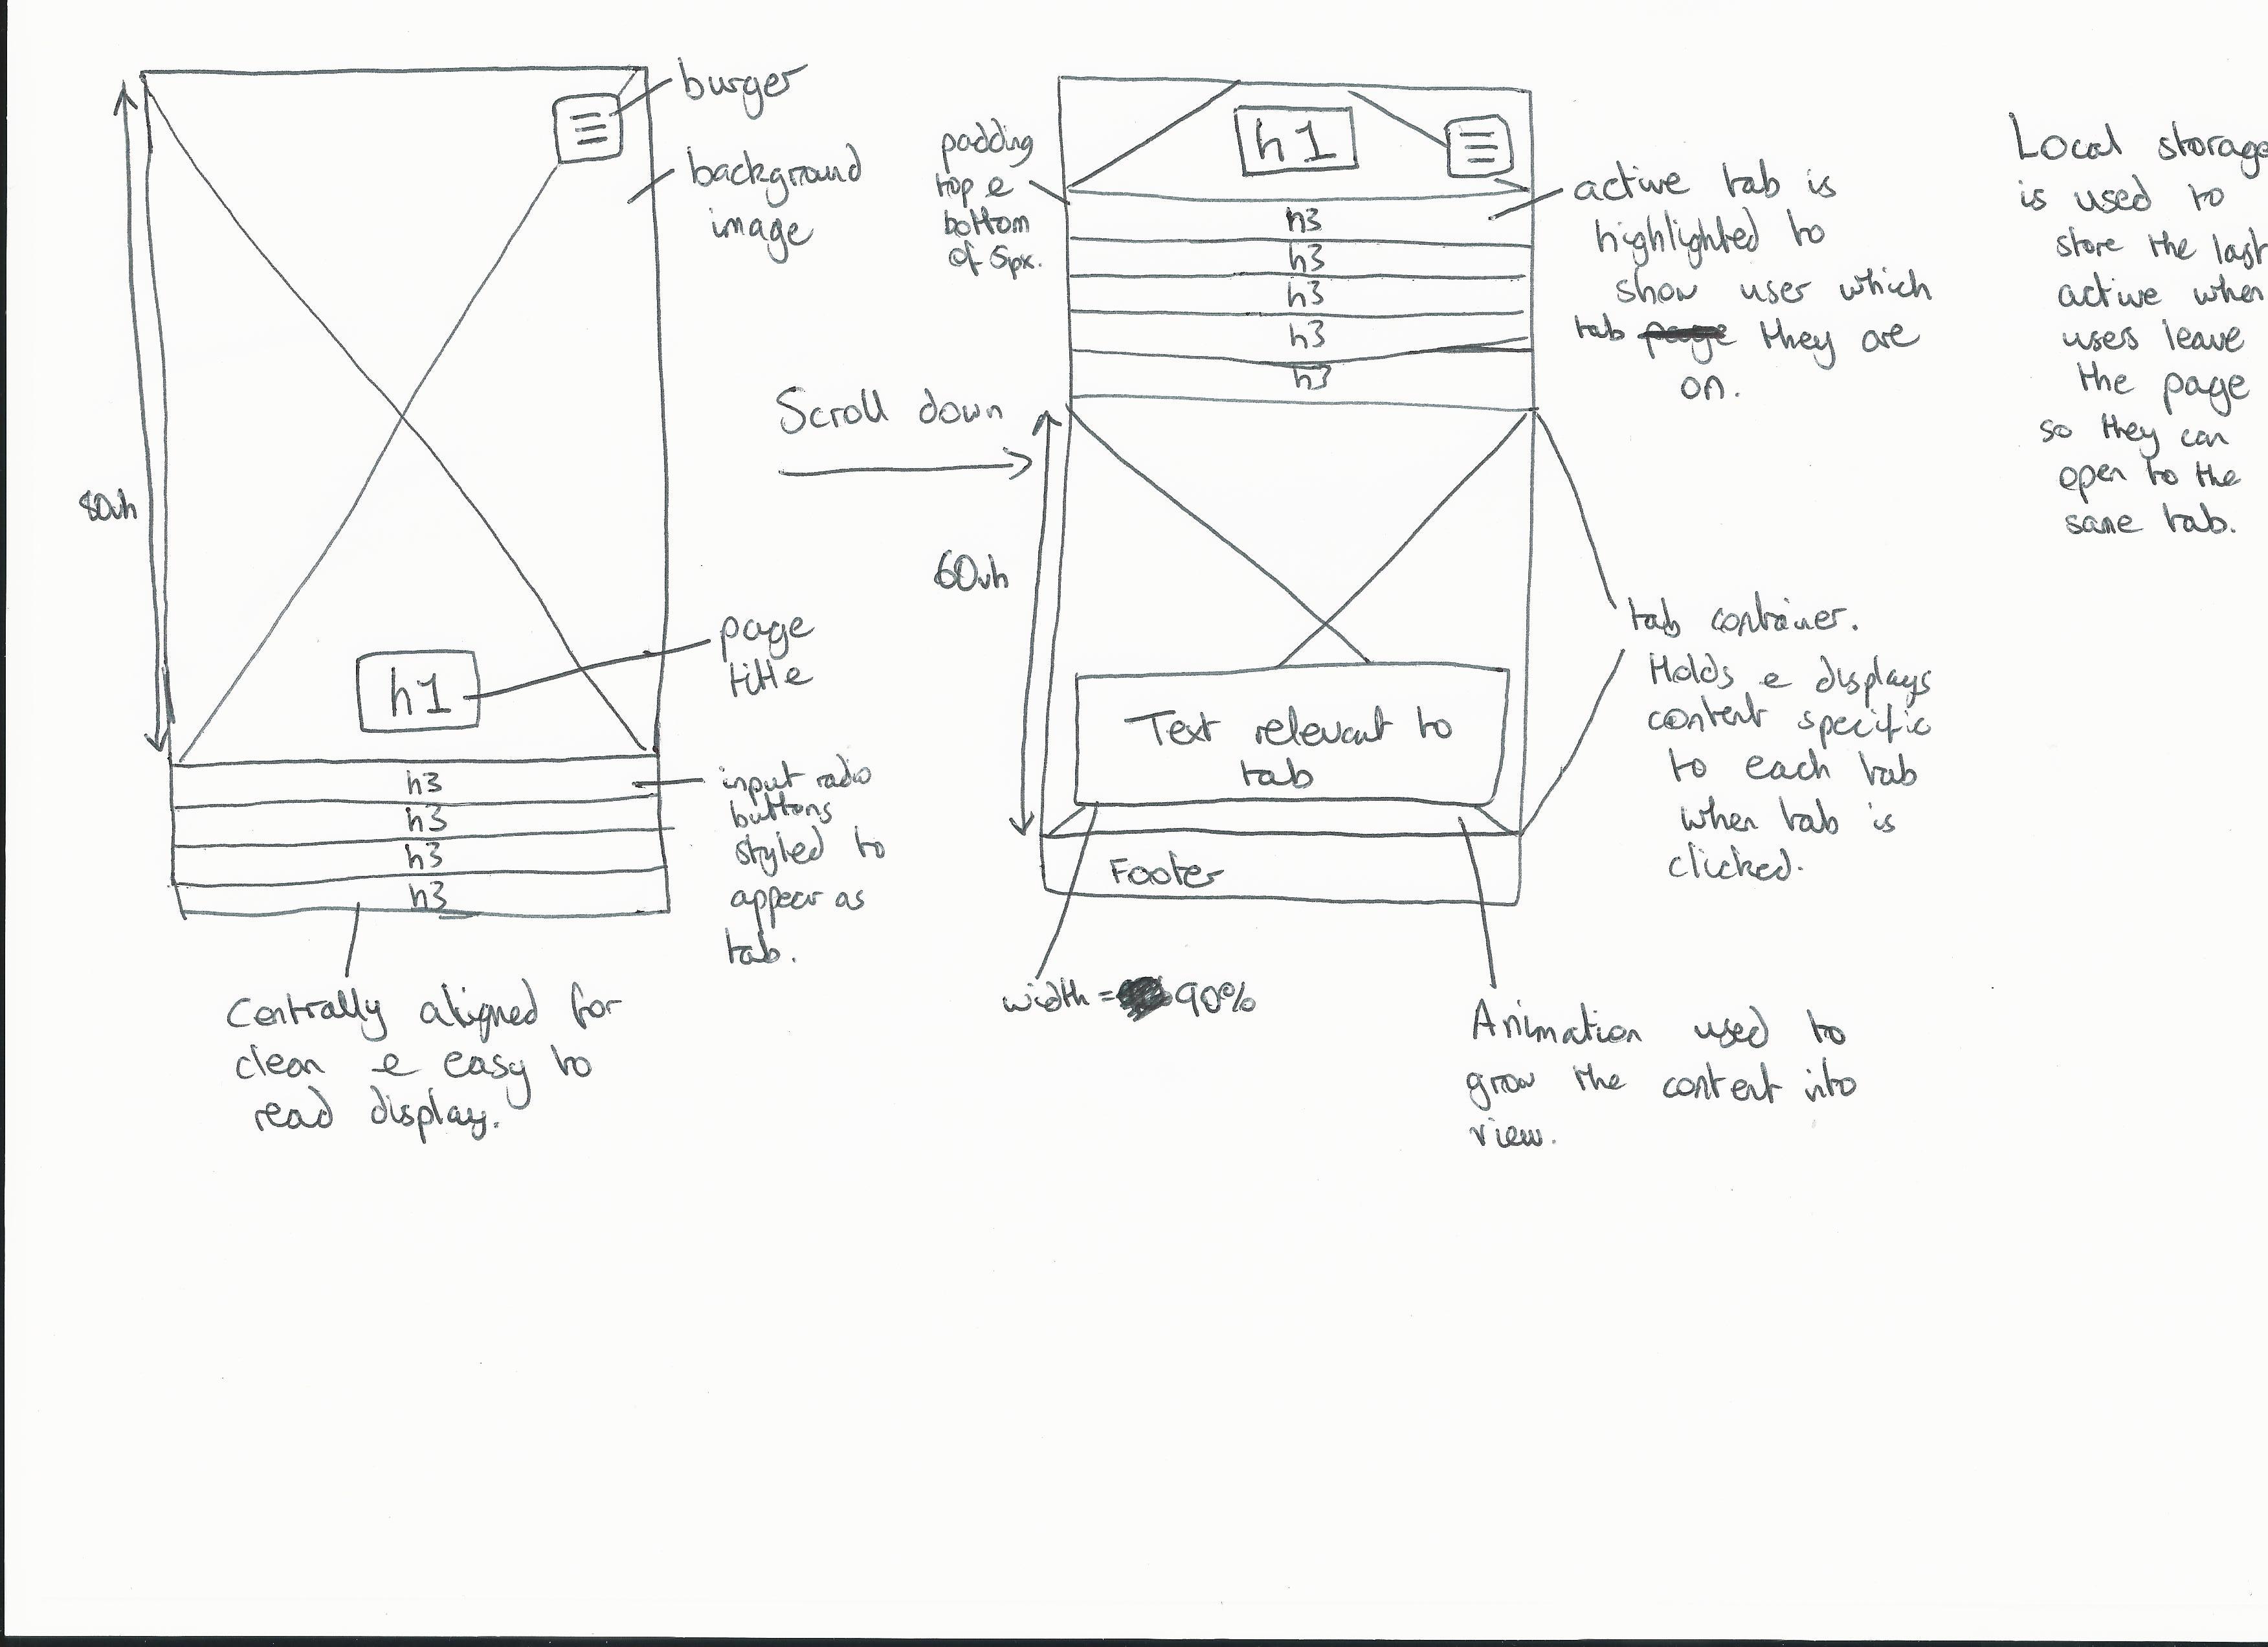 burger
background
image
80vh
h1
page
title
h3
h3
h3
h3
input radio
buttons
styled to
appear as
tab.
Centrally aligned for
clean & easy to
read display.
Scroll down
padding
top &
bottom
of 5px.
h1
h3
h3
h3
h3
h3
active tab is
highlighted to
show user which
tab page they are
on.
60vh
Text relevant to
tab
Footer
width = 90%
tab container.
Holds & displays
content specific
to each tab
when tab is
clicked.
Animation used to
grow the content into
view.
Local storage
is used to
store the last
active when
users leave
the page
so they can
open to the
same tab.